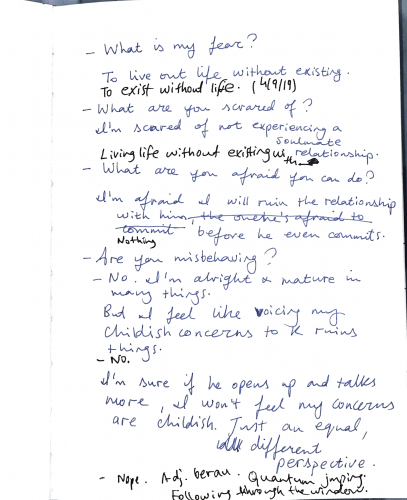 - What is my fear?
To live out life without existing.
To exist without life. (4/9/19)
- What are you scrared of?
I'm scared of not experiencing a
soulmate
Living life without existing with relationship.
- What are you afraid you can do?
I'm afraid I will ruin the relationship
with him, the one he's afraid to
commit, before he even commits.
Nothing
- Are you misbehaving?
- No. I'm alright & mature in
many things.
But I feel like voicing my
childish concerns to K ruins
things.
- No.
I'm sure if he opens up and talks
more, I won't feel my concerns
are childish. Just an equal,
different
perspective.
- Nope. Adj. Quantum jumping.
Following through the window.